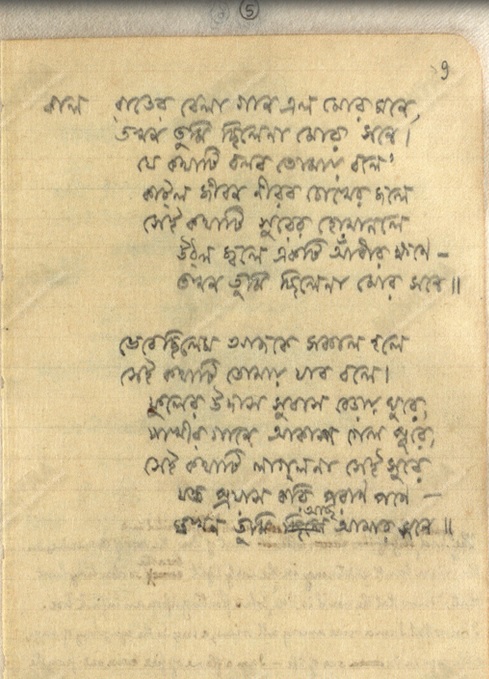 ৫
১৭
কাল রাতের বেলা গান এল মোর মনে,
তখন তুমি ছিলেনা মোর সনে।
যে কথাটি বলব তোমায় বলে'
কাটল জীবন নীরব চোখের জলে
সেই কথাটি সুরের হোমানলে
উঠল জ্বলে একটি আঁধার ক্ষণে –
তখন তুমি ছিলেনা মোর সনে॥
ভেবেছিলেম আজকে সকাল হলে
সেই কথাটি তোমায় যাব বলে।
ফুলের উদাস সুবাস বেড়ায় ঘুরে,
পাখীর গানে আকাশ গেল পূরে,
সেই কথাটি লাগ্‌লনা সেই সুরে
যত প্রয়াস করি পরাণ পণে –
যখন তুমি আছ আমার সনে॥